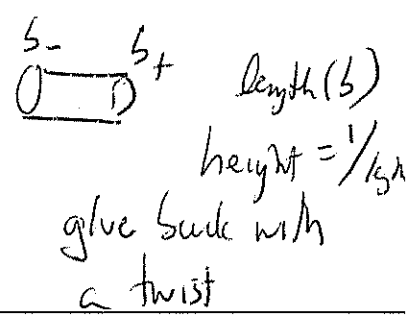 b- b+
length(b)
height = 1/
glue back with
a twist